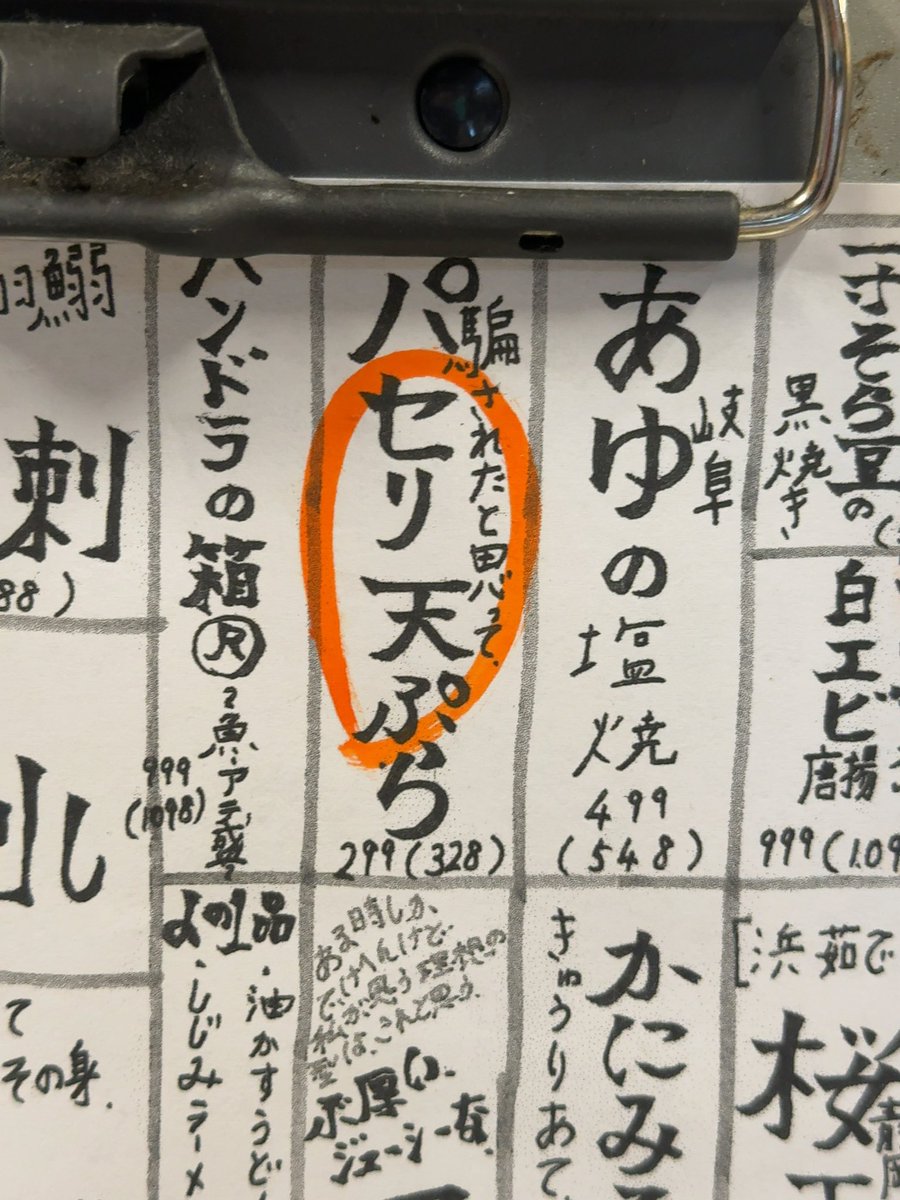 一寸そら豆の
黒焼き
白エビ
唐揚
999(1,09
[浜茹で
桜
静岡
あゆの塩焼
岐阜
499
(548)
きゅうりあて、
かにみ
騙されたと思って、
パセリ天ぷら
299(328)
ある時しか、
でけへんけど
私が思う理想の
型は、これと思う、
ボ厚い、
ジューシーな、
パンドラの箱
R
魚アテ盛
999
(1098)
よの1品
・油かすうど
・しじみラーメ
鰯
刺
88)
て
その身.